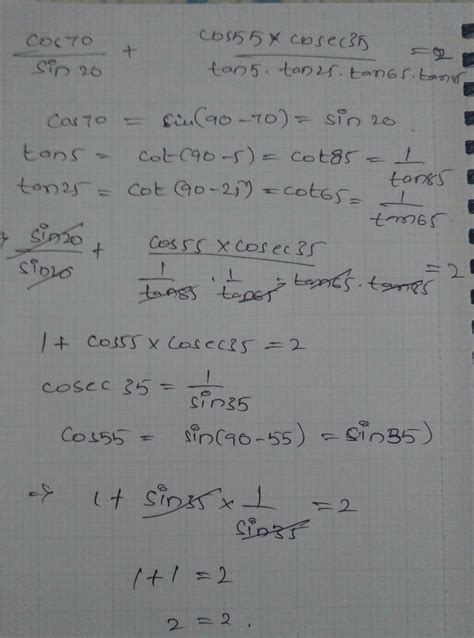 cos70/sin20 + (cos55 x cosec35)/(tan5 . tan25 . tan65 . tan85) = 2
cos70 = sin(90-70) = sin 20.
tan5 = cot(90-5) = cot85 = 1/tan85
tan25 = cot (90-25) = cot65 = 1/tan65.
⇒ sin20/sin20 + (cos55 x cosec35)/(1/tan85 . 1/tan65 . tan65 . tan85) = 2
1 + cos55 x cosec35 = 2
cosec 35 = 1/sin35
cos55 = sin(90-55) = sin35)
⇒ 1 + sin35 x 1/sin35 = 2
1+1 = 2
2 = 2.